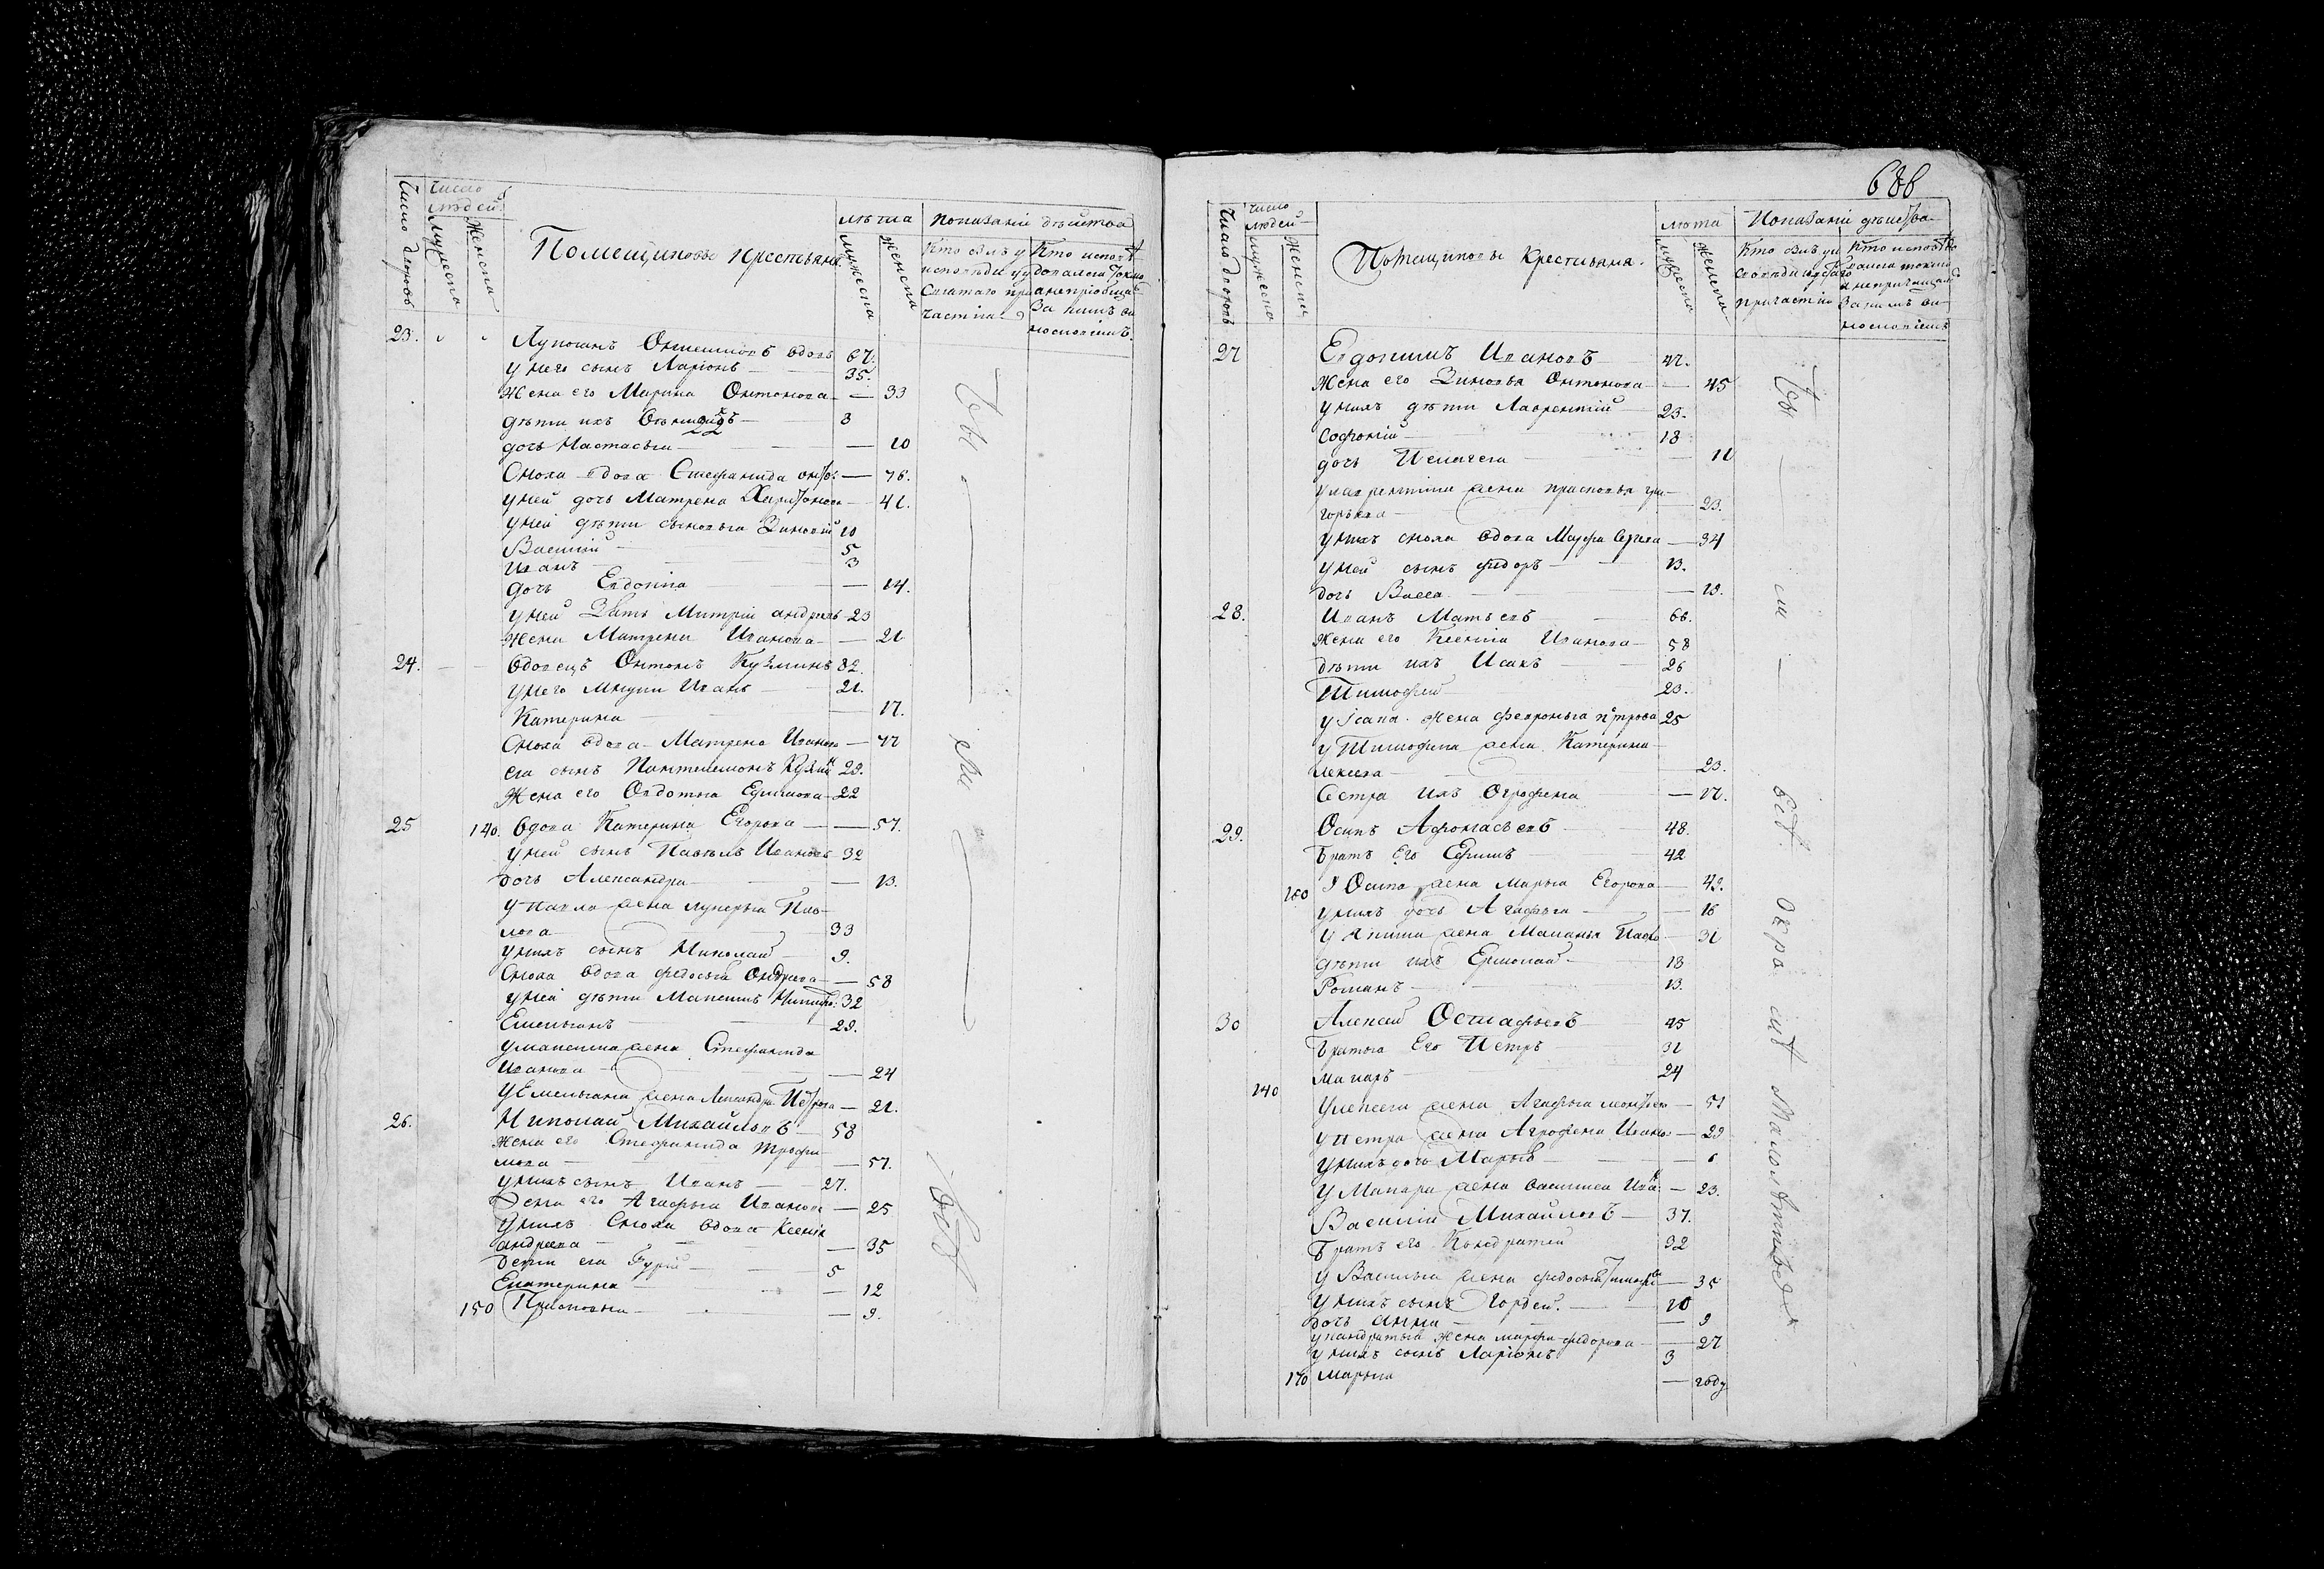 Число дворовъ
Число людей
Мужеска
Женска
Помещиковы крестьяне
лѣта
Мужеска
Женска
Показаніи дѣйства
Кто былъ у исповѣди и у Святаго причастия
Кто исповѣдовался токмо а не приобща
За какимъ винословіемъ
23.
Лупоянъ вдовъ 67.
у него сынъ Ларіонъ 35.
Жена его Марина Онтонова — 33
дѣти ихъ 3
дочь Настасья — 10
Сноха вдова Стефанида — 76.
у ней дочь Матрена Харитонова — 41.
у ней дѣти сыновья Зиновій 10
Василій 5
Иванъ 3
дочь Евдокия — 14.
у ней Зять Митрій андреевъ 23
жена Матрена Иванова — 21
24. вдовецъ Онтонъ Кузминъ 82.
у него внуки Иванъ 21.
Катерина — 17.
Сноха вдова Матрена Иванова — 47
ея сынъ Пантелемонъ 29.
Жена его Овдотья Ефимова 22
25 140. вдова Катерина Егорова — 57.
у ней сынъ Павелъ Ивановъ 32
дочь Александра — 13.
у Павла жена лукерья Пав-
лова 33
у нихъ сынъ Николай 9.
Сноха вдова федосья Ондреева — 58
у ней дѣти Максимъ 32
Емельянъ 29.
у максима жена Стефанида
Иванова — 24
у Емельяна жена Александра Петрова — 21.
26. Николай Михайловъ 58
жена его Стефанида Трофи-
мова — 57.
у нихъ сынъ Иванъ 27.
Жена его Агафья Иванова — 25
у нихъ Сноха вдова Ксения
андреева — 35
дети ея Гурій 5
Екатерина — 12
150 Прасковья — 9.
бы
ли
вси
688
Число дворовъ
Число людей
мужеска
женска
Помещиковы Крестьяне.
лѣта
мужеска
женска
Показаніи дѣйства
Кто былъ у исповѣди и у Святаго причастія
Кто исповѣдовался токмо а не причащался
За какимъ винословіемъ
27 Евдокимъ Ивановъ 47.
Жена его Зиновья Онтонова — 45
у нихъ дѣти Лаврентій 23.
Софроній 18
дочь Пелагея — 11
у лаврентия жена прасковья гри-
горьева — 23.
у нихъ сноха вдова Марфа — 34
у ней сынъ фёдоръ 13.
дочь Васса — 19.
28. Иванъ Матвѣевъ 66.
жена его Ксения Иванова 58
дѣти ихъ Исакъ 26
Тимофей 23.
у Исака жена февронья петрова 25
у Тимофея жена Катерина
лексеева 23.
Сестра ихъ Огрофена — 17.
29. Осипъ Афонасьевъ 48.
Братъ его Ефимъ 42
160 у Осипа жена Марья Егорова — 49.
у нихъ дочь Агафья — 16
у Ефима жена Маланья — 31
дѣти ихъ Ермолай 18
Романъ 13.
30 Алексей Остафьевъ 45
Братья Его Петръ 31
Макаръ 24
140 у лексея жена Агафья — 51
у петра жена Агрофена Иванова — 29
у нихъ дочь Марья — 6
у Макара жена василиса — 23.
Василій Михайловъ 37.
Братъ его Кондратей 32
у Василья жена федосья — 35
у нихъ сынъ Гордей. 10
дочь анна — 9
у кандратья жена марфа федорова — 27
у нихъ сынъ Ларіонъ 3
170 Марья — году
бы
ли